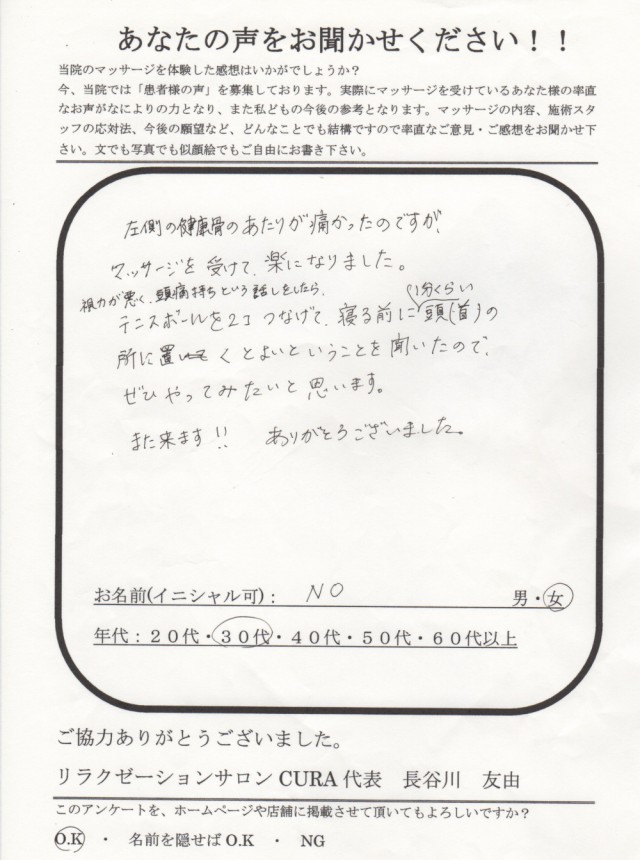 あなたの声をお聞かせください！！
当院のマッサージを体験した感想はいかがでしょうか？
今、当院では「患者様の声」を募集しております。実際にマッサージを受けているあなた様の率直
なお声がなによりの力となり、また私どもの今後の参考となります。マッサージの内容、施術スタ
ッフの応対法、今後の願望など、どんなことでも結構ですので率直なご意見・ご感想をお聞かせ下
さい。文でも写真でも似顔絵でもご自由にお書き下さい。
左側の健康骨のあたりが痛かったのですが、
マッサージを受けて、楽になりました。
視力が悪く、頭痛持ちという話しをしたら、
1分くらい
テニスボールを2コつなげて、寝る前に頭(首)の
所に置くとよいということを聞いたので、
ぜひやってみたいと思います。
また来ます!! ありがとうございました。
お名前(イニシャル可)： NO 男・女
年代：２０代・３０代・４０代・５０代・６０代以上
ご協力ありがとうございました。
リラクゼーションサロン CURA 代表 長谷川 友由
このアンケートを、ホームページや店舗に掲載させて頂いてもよろしいですか？
O.K ・ 名前を隠せば O.K ・ NG